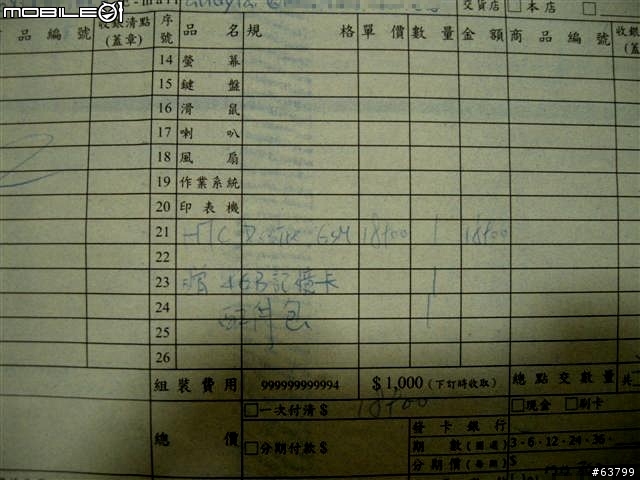 mobile01
交貨店 □本店 □
商品編號 收銀清點(蓋章) 序號 品名 規格 單價 數量 金額 商品編號 收銀
14 螢幕
15 鍵盤
16 滑鼠
17 喇叭
18 風扇
19 作業系統
20 印表機
21 HTC GSM 1 
22
23 4GB記憶卡 1
24 配件包 1
25
26
組裝費用 999999999994 $1,000(下訂時收取) 總點交數量 共
總價 □一次付清$ □現金 □刷卡
發卡銀行
□分期付款$ 期數(圈選) 3‧6‧12‧24‧36‧
分期價(每期) $
#63799